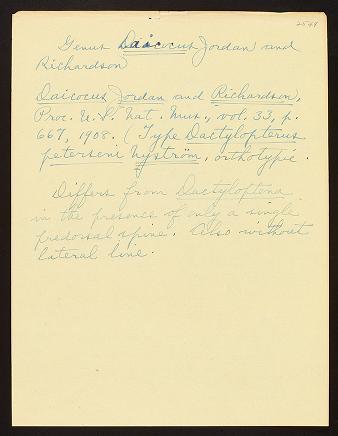 2549
Genus Daicocus Jordan and
Richardson
Daicocus Jordan and Richardson,
Proc. U.S. Nat. Mus., vol. 33, p.
667, 1908. (Type Dactylopterus
peterseni Nyström, orthotypic.
Differs from Dactyloptena
in the presence of only a single
predorsal spine. Also without
lateral line.